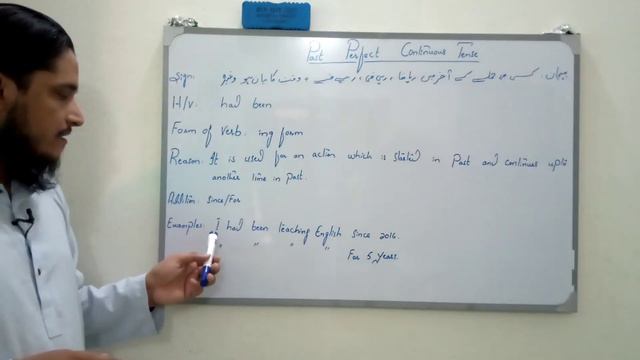 Past Perfect Continuous Tense
Sign: پہچان: کسی جملے کے آخر میں رہا تھا، رہی تھی، رہے تھے، وقت کا بیان ہو وغیرہ
H/v: had been
Form of Verb: ing form
Reason: It is used for an action which is started in Past and continues upto
another time in past.
Addition: Since/For
Examples: I had been teaching English Since 2016.
" " " "
For 5 Years.